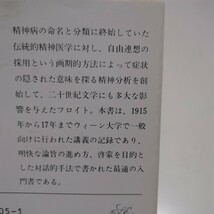 精神病の命名と分類に終始していた
伝統的精神医学に対し、自由連想の
採用という画期的方法によって症状
の隠された意味を探る精神分析を創
始して、二十世紀文学にも多大な影
響を与えたフロイト。本書は、1915
年から17年までウィーン大学で一般
向けに行われた講義の記録であり、
明快な論旨の進め方、啓蒙を目的と
した対話的手法で書かれた最適の入
門書である。
05-1